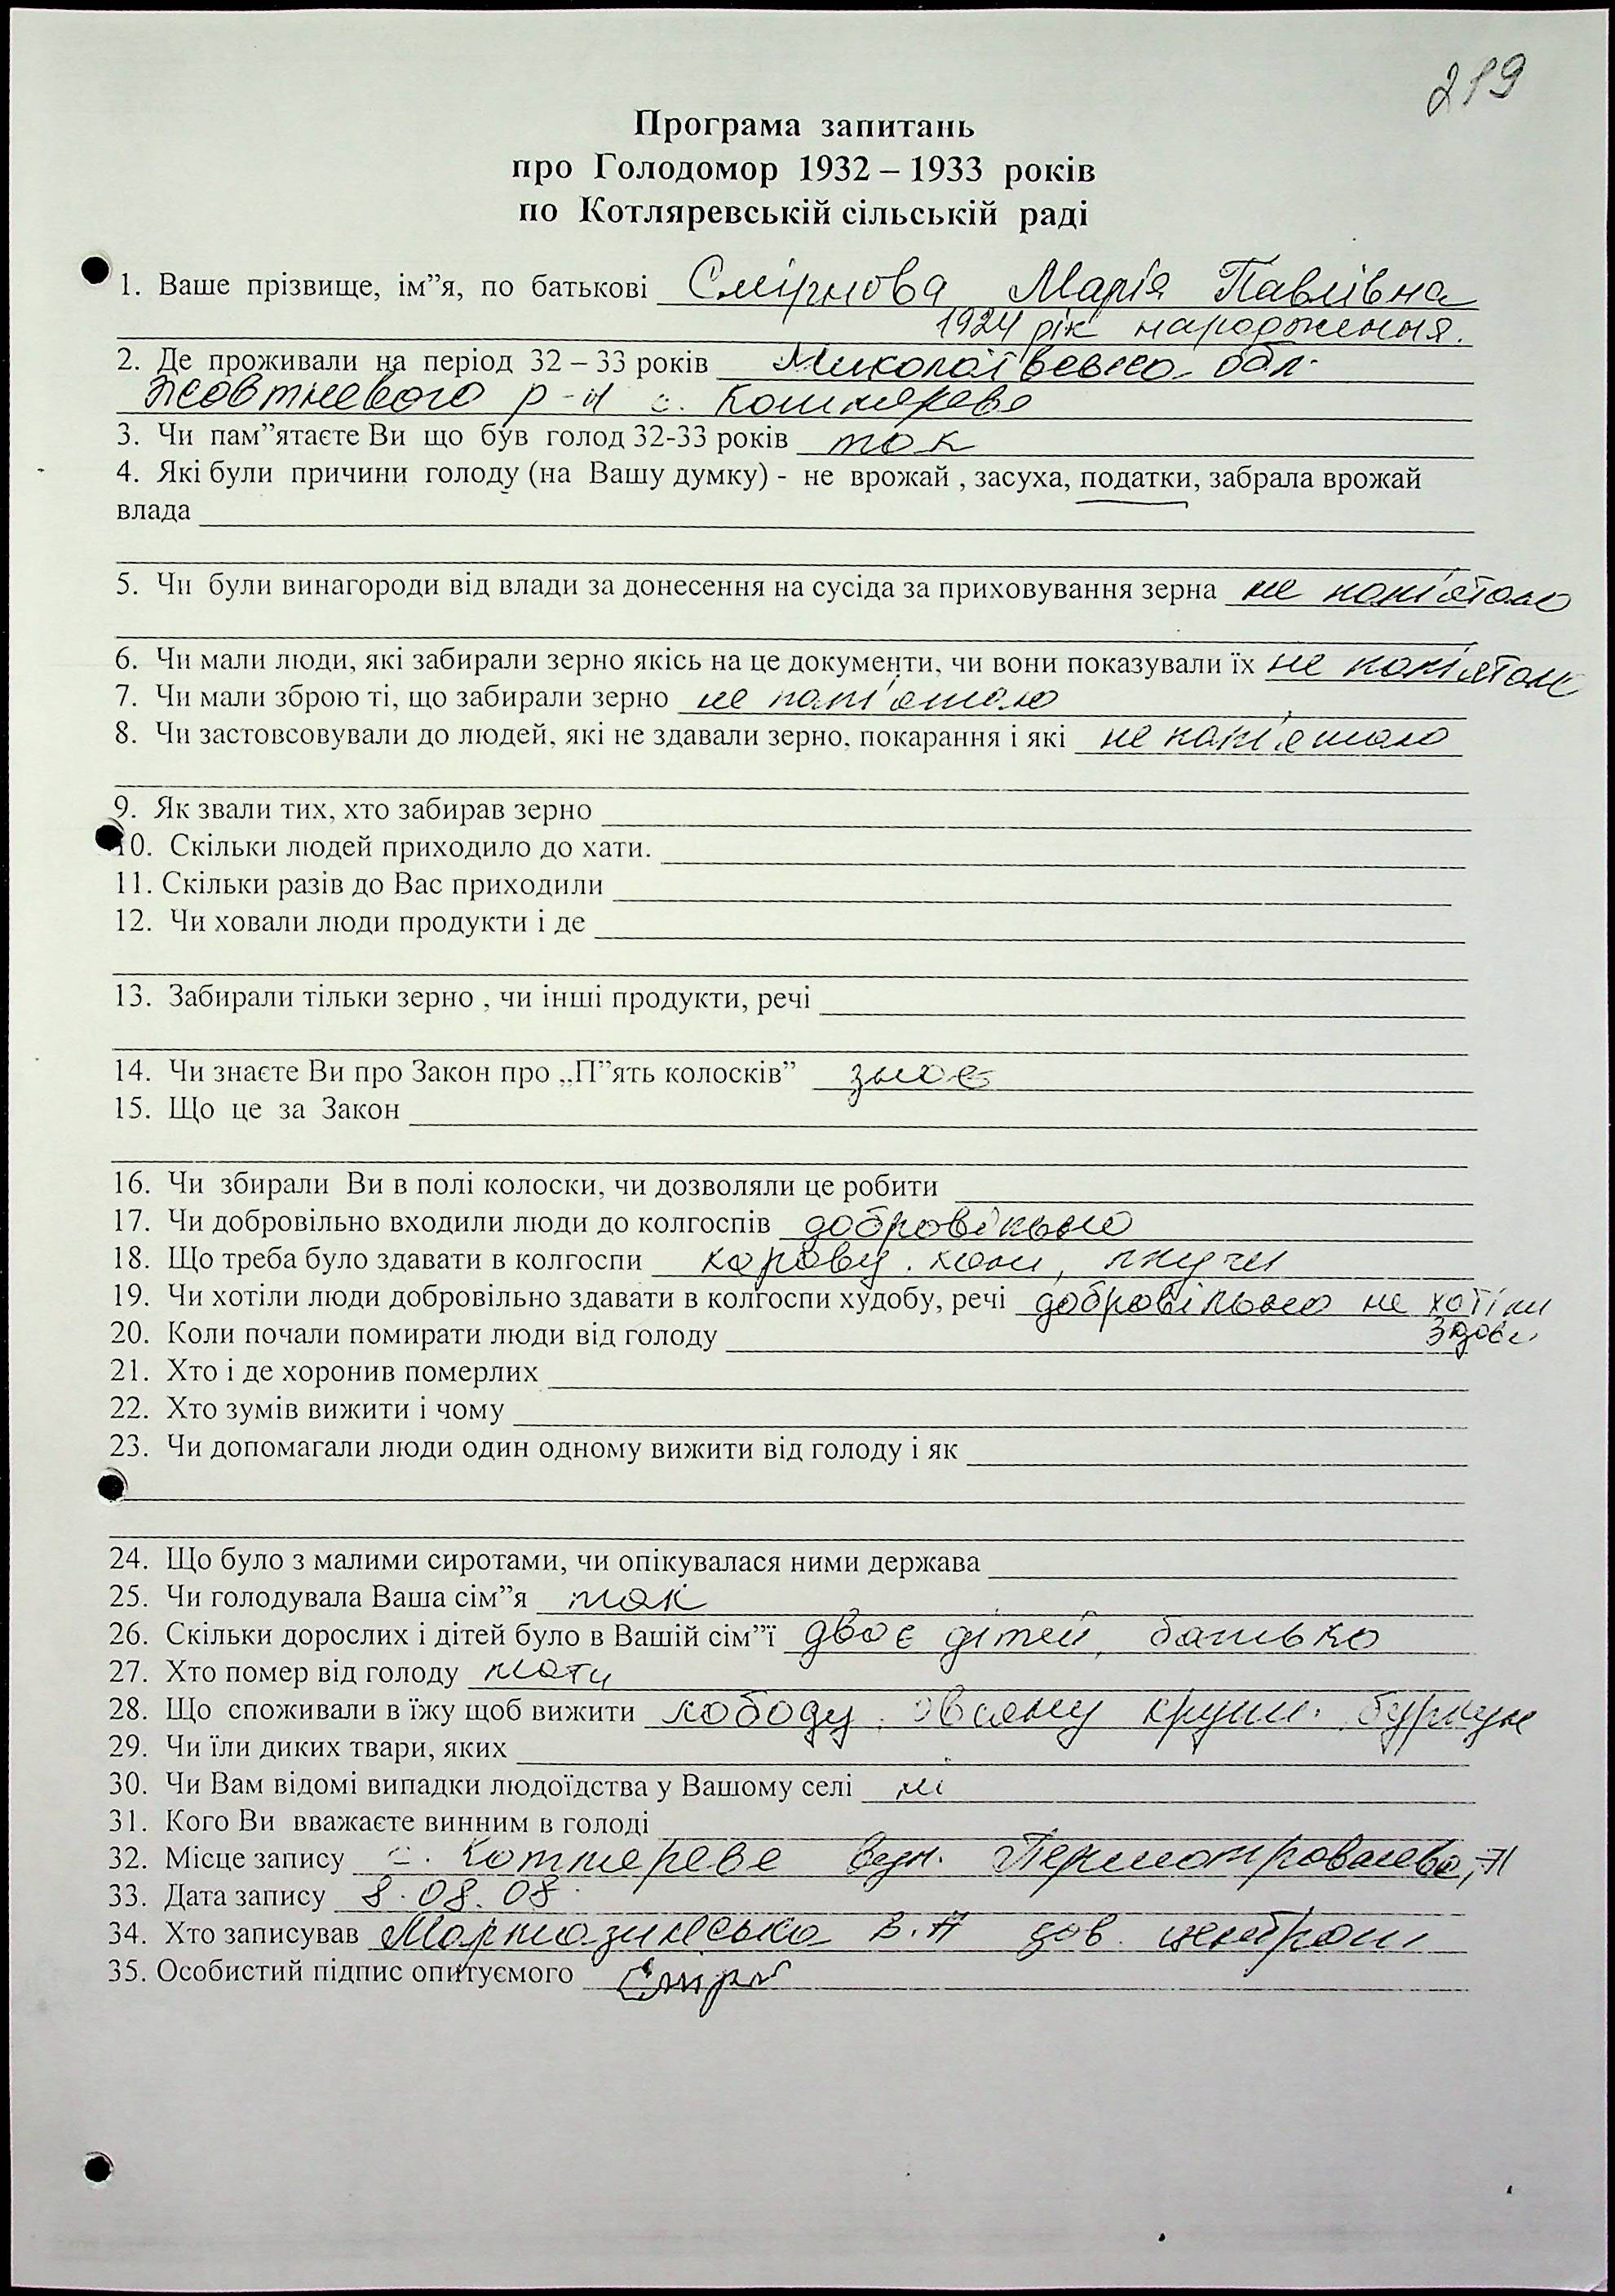 219
Програма запитань
про Голодомор 1932 – 1933 років
по Котляревській сільській раді
1. Ваше прізвище, ім”я, по батькові Смірнова Марія Павлівна
1924 рік народження.
2. Де проживали на період 32 – 33 років Миколаївська обл.
Жовтневого р-н с. Котлярева
3. Чи пам”ятаєте Ви що був голод 32-33 років так
4. Які були причини голоду (на Вашу думку) - не врожай , засуха, податки, забрала врожай
влада
5. Чи були винагороди від влади за донесення на сусіда за приховування зерна не пам'ятаю
6. Чи мали люди, які забирали зерно якісь на це документи, чи вони показували їх не пам'ятаю
7. Чи мали зброю ті, що забирали зерно не пам'ятаю
8. Чи застовсовували до людей, які не здавали зерно, покарання і які не пам'ятаю
9. Як звали тих, хто забирав зерно
10. Скільки людей приходило до хати.
11. Скільки разів до Вас приходили
12. Чи ховали люди продукти і де
13. Забирали тільки зерно , чи інші продукти, речі
14. Чи знаєте Ви про Закон про „П”ять колосків” знає
15. Що це за Закон
16. Чи збирали Ви в полі колоски, чи дозволяли це робити
17. Чи добровільно входили люди до колгоспів добровільно
18. Що треба було здавати в колгоспи корову, коні, плуги
19. Чи хотіли люди добровільно здавати в колгоспи худобу, речі добровільно не хотіли
20. Коли почали помирати люди від голоду
21. Хто і де хоронив померлих
22. Хто зумів вижити і чому
23. Чи допомагали люди один одному вижити від голоду і як
24. Що було з малими сиротами, чи опікувалася ними держава
25. Чи голодувала Ваша сім”я так
26. Скільки дорослих і дітей було в Вашій сім”ї двоє дітей, батько
27. Хто помер від голоду мати
28. Що споживали в їжу щоб вижити лободу, овсяну крупи, буркун
29. Чи їли диких твари, яких
30. Чи Вам відомі випадки людоїдства у Вашому селі ні
31. Кого Ви вважаєте винним в голоді
32. Місце запису с. Котлярева вул.
33. Дата запису 8.08.08
34. Хто записував В.А зав.
35. Особистий підпис опитуємого